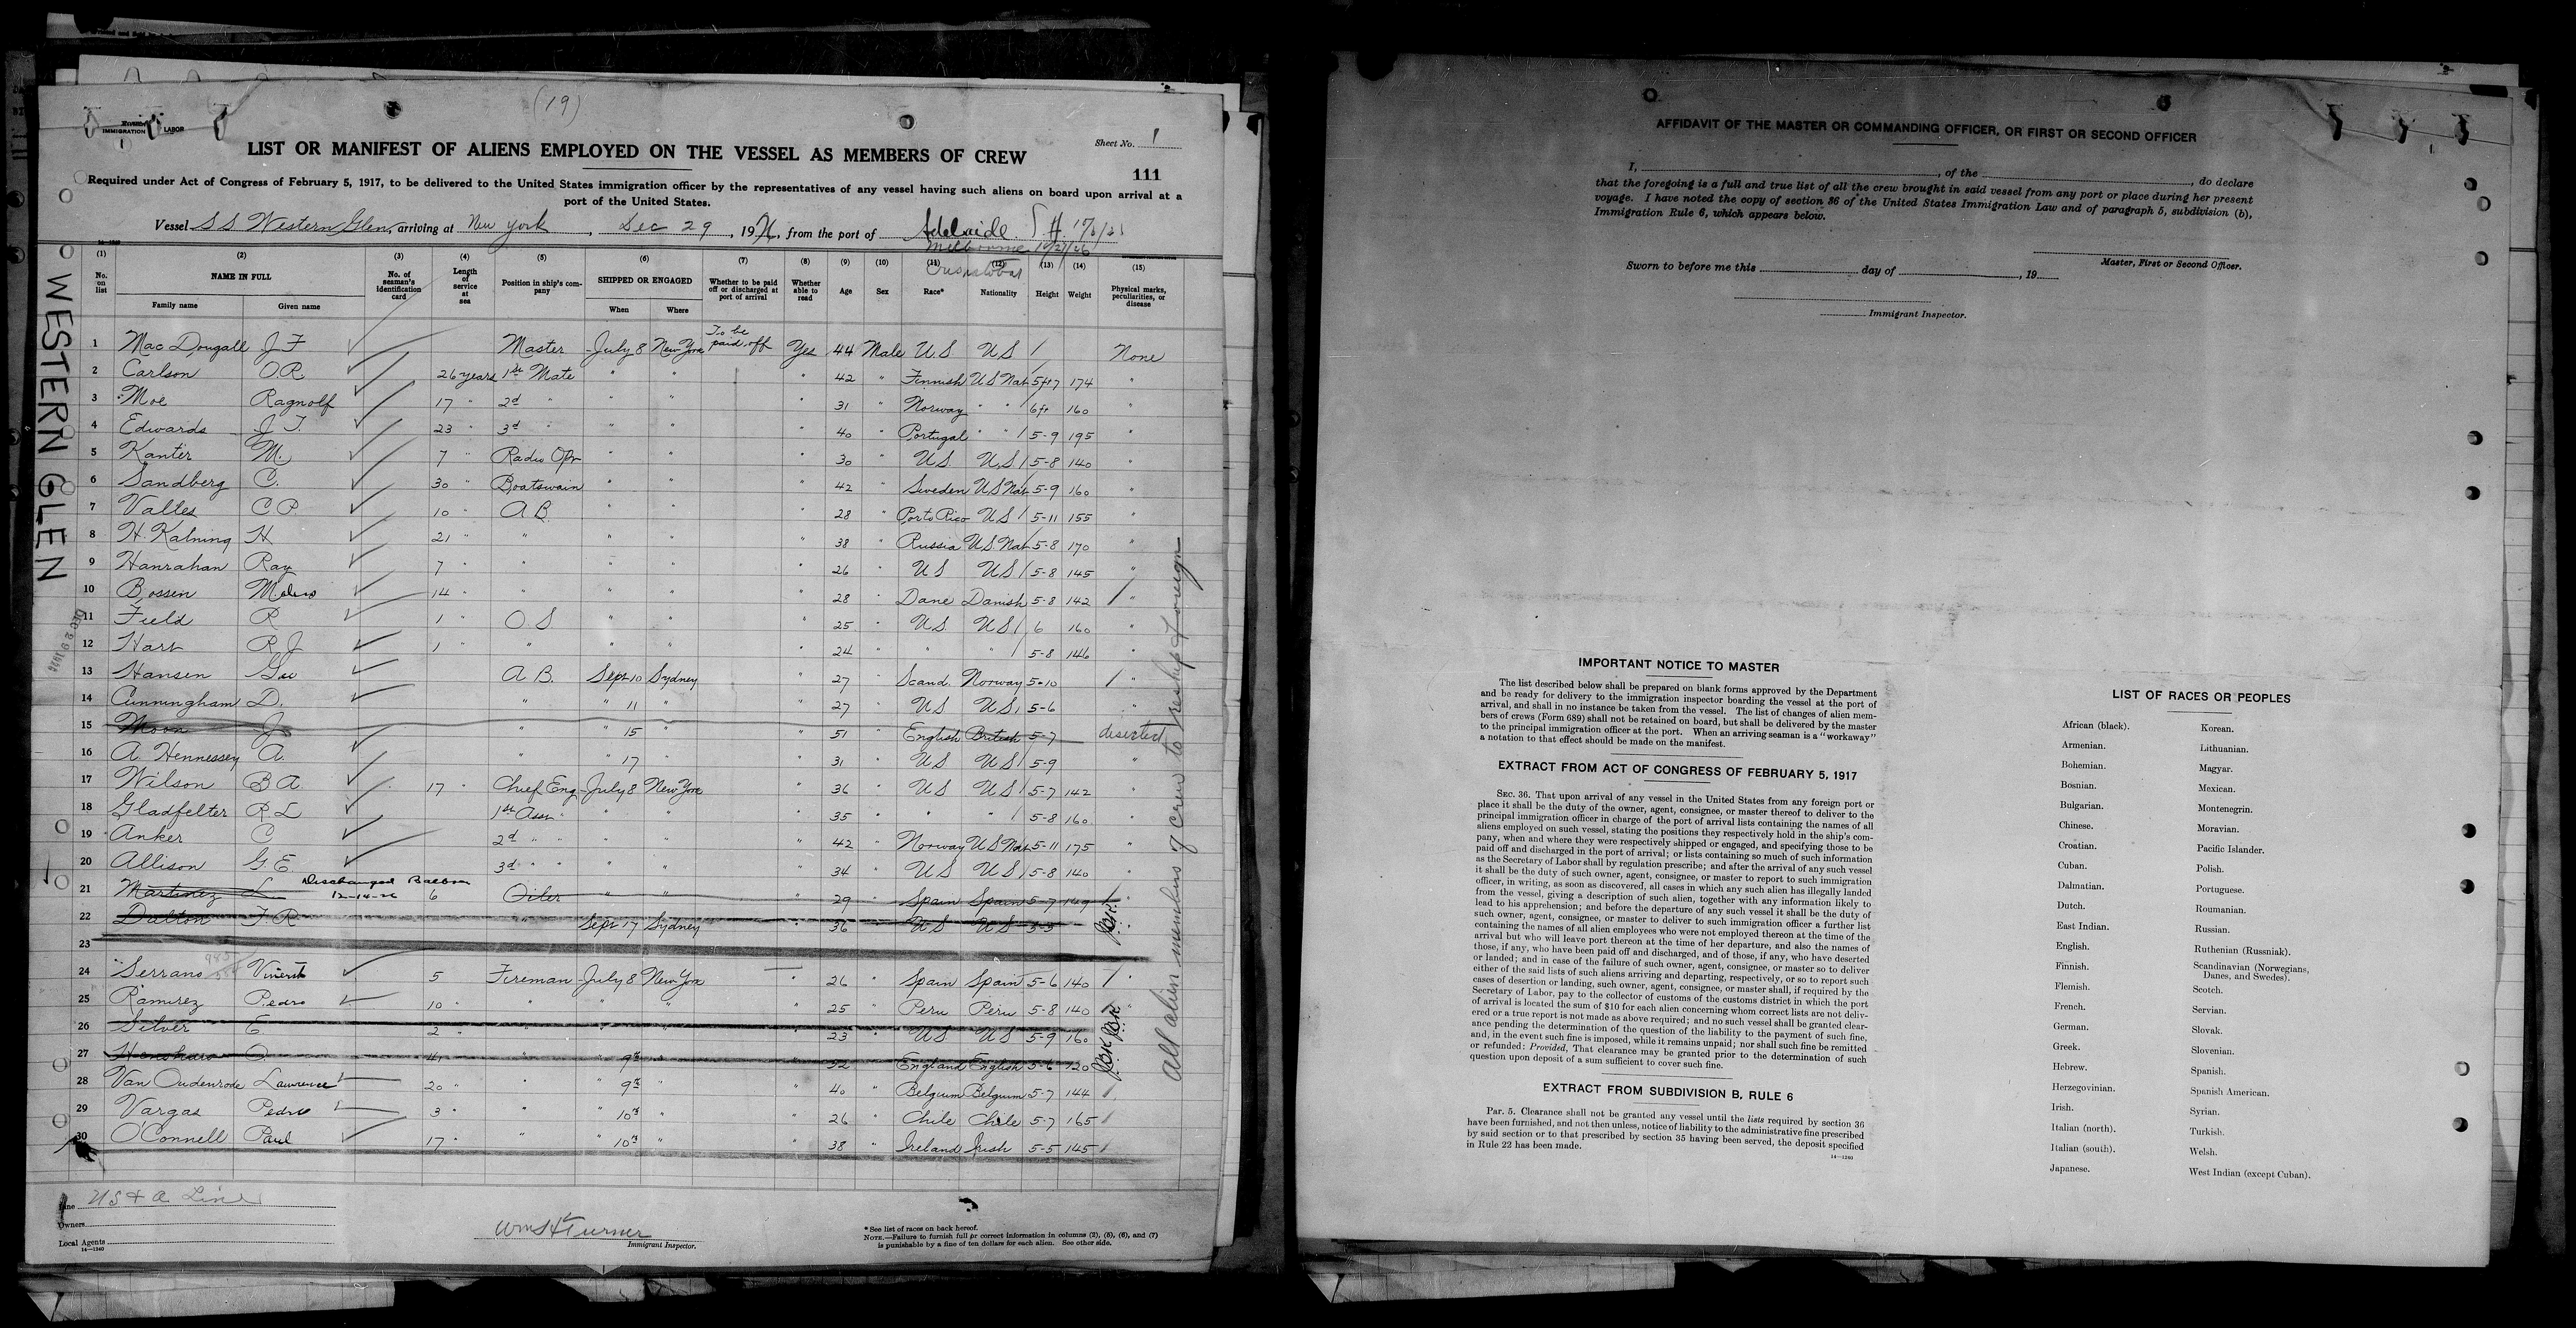 (19)
IMMIGRATION LABOR
Sheet No. 1
LIST OR MANIFEST OF ALIENS EMPLOYED ON THE VESSEL AS MEMBERS OF CREW
111
Required under Act of Congress of February 5, 1917, to be delivered to the United States immigration officer by the representatives of any vessel having such aliens on board upon arrival at a
port of the United States.
Vessel SS Western Glen, arriving at New York, Dec 29, 19, from the port of Adelaide
Melbourne
(1) (2) (3) (4) (5) (6) (7) (8) (9) (10) (11) (12) (13) (14) (15)
No. on list NAME IN FULL Family name Given name No. of seaman's identification card Length of service at sea Position in ship's company SHIPPED OR ENGAGED When Where Whether to be paid off or discharged at port of arrival Whether able to read Age Sex Race* Nationality Height Weight Physical marks, peculiarities, or disease
1 Mac Dougall J F Master July 8 New York To be paid off Yes 44 Male US US None
2 Carlson O.R. 26 years 1st Mate " " " 42 " Finnish US Nat 5ft7 174 "
3 Moe Ragnolf 17 " 2d " " " " 31 " Norway " " 6ft 160 "
4 Edwards J T. 23 " 3d " " " " 40 " Portugal " " 5-9 195 "
5 Kanter M. 7 " Radio Opr " " " 30 " US. US 5-8 140 "
6 Sandberg C. 30 " Boatswain " " " 42 " Sweden US Nat 5-9 160 "
7 Valles C P 10 " A B. " " " 28 " Porto Rico US 5-11 155 "
8 H. Kalning H 21 " " " " " 38 " Russia US. Nat 5-8 170 "
9 Hanrahan Ray 7 " " " " " 26 " US US 5-8 145 "
10 Bossen 14 " " " " " 28 " Dane Danish 5-8 142 "
11 Field R 1 " O S " " " 25 " US. US 6 160 "
12 Hart R J 1 " " " " " 24 " " " 5-8 146 "
13 Hansen Geo A B. Sept 10 Sydney " 27 " Scand. Norway 5-10 "
14 Cunningham D. " " 11 " " 27 " US US 5-6 "
15 Moon J. " " 15 " " 51 " English British 5-7 deserted
16 A. Hennessey A. " " 17 " " 31 " US US 5-9 "
17 Wilson B A. 17 " Chief Eng July 8 New York " 36 " US US 5-7 142 "
18 Gladfelter R. L 1st Assn " " " " 35 " " " 5-8 160 "
19 Anker C 2d " " " " " 42 " Norway US Nat 5-11 175 "
20 Allison G E. 3d " " " " " 34 " US US 5-8 140 "
Discharged Balboa
12-14-26
21 Martinez L 6 Oiler " " " 29 " Spain Spain 5-7 149 "
22 Dalton F. R " Sept 17 Sydney " 36 " US US 5-5 "
23
24 Serrano 5 Fireman July 8 New York " 26 " Spain Spain 5-6 140 "
25 Ramirez Pedro 10 " " " " " 25 " Peru Peru 5-8 140 "
26 Silver E 2 " " " " " 23 " US US 5-9 160
27 " " 9th " " 52 England English 5-6 120
28 Van Oudenrode Lawrence 20 " " " 9th " " 40 " Belgium Belgium 5-7 144
29 Vargas Pedro 3 " " " 10th " " 26 " Chile Chile 5-7 165
30 O'Connell Paul 17 " " " 10th " " 38 " Ireland Irish 5-5 145
WESTERN GLEN
DEC 29 1926
All alien members of crew to reship foreign
Line US & A Line
Owners
Local Agents
14—1240
Wm H Turner
Immigrant Inspector.
*See list of races on back hereof.
NOTE.—Failure to furnish full or correct information in columns (2), (5), (6), and (7)
is punishable by a fine of ten dollars for each alien. See other side.
AFFIDAVIT OF THE MASTER OR COMMANDING OFFICER, OR FIRST OR SECOND OFFICER
I, , of the , do declare
that the foregoing is a full and true list of all the crew brought in said vessel from any port or place during her present
voyage. I have noted the copy of section 36 of the United States Immigration Law and of paragraph 5, subdivision (b),
Immigration Rule 6, which appears below.
Master, First or Second Officer.
Sworn to before me this day of , 19
Immigrant Inspector.
IMPORTANT NOTICE TO MASTER
The list described below shall be prepared on blank forms approved by the Department
and be ready for delivery to the immigration inspector boarding the vessel at the port of
arrival, and shall in no instance be taken from the vessel. The list of changes of alien mem-
bers of crews (Form 689) shall not be retained on board, but shall be delivered by the master
to the principal immigration officer at the port. When an arriving seaman is a "workaway"
a notation to that effect should be made on the manifest.
EXTRACT FROM ACT OF CONGRESS OF FEBRUARY 5, 1917
SEC. 36. That upon arrival of any vessel in the United States from any foreign port or
place it shall be the duty of the owner, agent, consignee, or master thereof to deliver to the
principal immigration officer in charge of the port of arrival lists containing the names of all
aliens employed on such vessel, stating the positions they respectively hold in the ship's com-
pany, when and where they were respectively shipped or engaged, and specifying those to be
paid off and discharged in the port of arrival; or lists containing so much of such information
as the Secretary of Labor shall by regulation prescribe; and after the arrival of any such vessel
it shall be the duty of such owner, agent, consignee, or master to report to such immigration
officer, in writing, as soon as discovered, all cases in which any such alien has illegally landed
from the vessel, giving a description of such alien, together with any information likely to
lead to his apprehension; and before the departure of any such vessel it shall be the duty of
such owner, agent, consignee, or master to deliver to such immigration officer a further list
containing the names of all alien employees who were not employed thereon at the time of the
arrival but who will leave port thereon at the time of her departure, and also the names of
those, if any, who have been paid off and discharged, and of those, if any, who have deserted
or landed; and in case of the failure of such owner, agent, consignee, or master so to deliver
either of the said lists of such aliens arriving and departing, respectively, or so to report such
cases of desertion or landing, such owner, agent, consignee, or master shall, if required by the
Secretary of Labor, pay to the collector of customs of the customs district in which the port
of arrival is located the sum of $10 for each alien concerning whom correct lists are not deliv-
ered or a true report is not made as above required; and no such vessel shall be granted clear-
ance pending the determination of the question of the liability to the payment of such fine,
and, in the event such fine is imposed, while it remains unpaid; nor shall such fine be remitted
or refunded: Provided, That clearance may be granted prior to the determination of such
question upon deposit of a sum sufficient to cover such fine.
EXTRACT FROM SUBDIVISION B, RULE 6
Par. 5. Clearance shall not be granted any vessel until the lists required by section 36
have been furnished, and not then unless, notice of liability to the administrative fine prescribed
by said section or to that prescribed by section 35 having been served, the deposit specified
in Rule 22 has been made.
14—1240
LIST OF RACES OR PEOPLES
African (black).
Armenian.
Bohemian.
Bosnian.
Bulgarian.
Chinese.
Croatian.
Cuban.
Dalmatian.
Dutch.
East Indian.
English.
Finnish.
Flemish.
French.
German.
Greek.
Hebrew.
Herzegovinian.
Irish.
Italian (north).
Italian (south).
Japanese.
Korean.
Lithuanian.
Magyar.
Mexican.
Montenegrin.
Moravian.
Pacific Islander.
Polish.
Portuguese.
Roumanian.
Russian.
Ruthenian (Russniak).
Scandinavian (Norwegians,
Danes, and Swedes).
Scotch.
Servian.
Slovak.
Slovenian.
Spanish.
Spanish American.
Syrian.
Turkish.
Welsh.
West Indian (except Cuban).